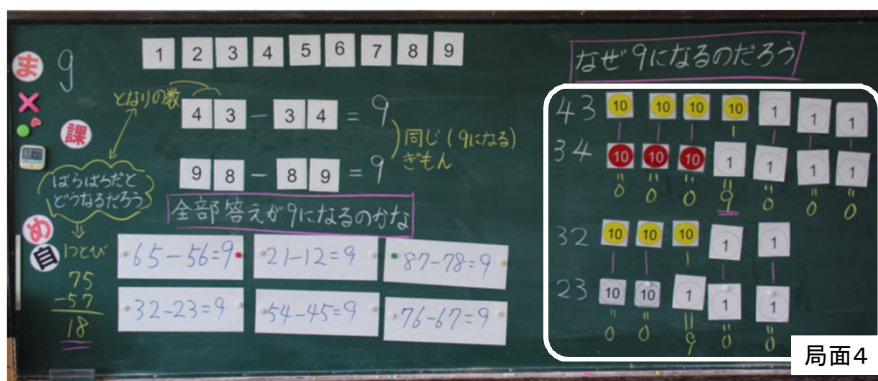 ま
9
1 2 3 4 5 6 7 8 9
となりの数
43-34=9
98-89=9
同じ(9になる)
ぎもん
課
ばらばらだと
どうなるだろう
全部答えが9になるのかな
め
自
1つとび
75
-57
18
65-56=9
21-12=9
87-78=9
32-23=9
54-45=9
76-67=9
なぜ9になるのだろう
43 10 10 10 10 1 1 1
34 10 10 10 1 1 1 1
0 0 0 9 0 0 0
32 10 10 10 1 1
23 10 10 1 1 1
0 0 9 0 0
局面4